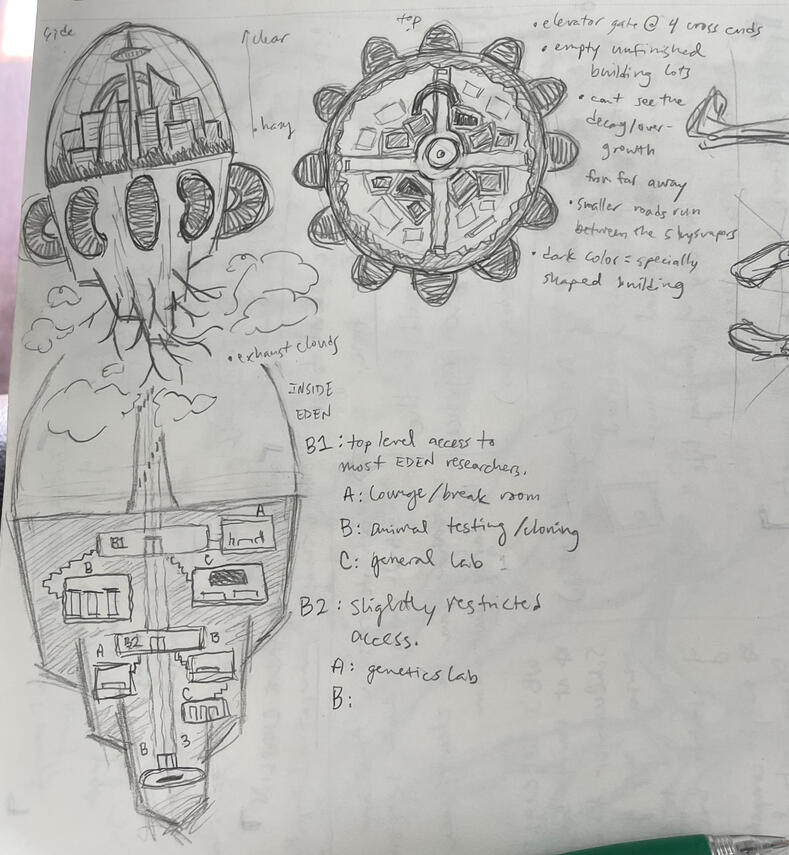 side
clear
hazy
top
• elevator gate @ 4 cross ends
• empty unfinished
building lots
• can't see the
decay/over-
growth
from far away
• smaller roads run
between the skyscrapers
• dark color = specially
shaped building
• exhaust clouds
INSIDE
EDEN
B1: top level access to
most EDEN researchers.
A: lounge/break room
B: animal testing/cloning
C: general lab
B2: slightly restricted
access.
A: genetics lab
B:
A
B1
B
C
B2
A
B
C
B 3